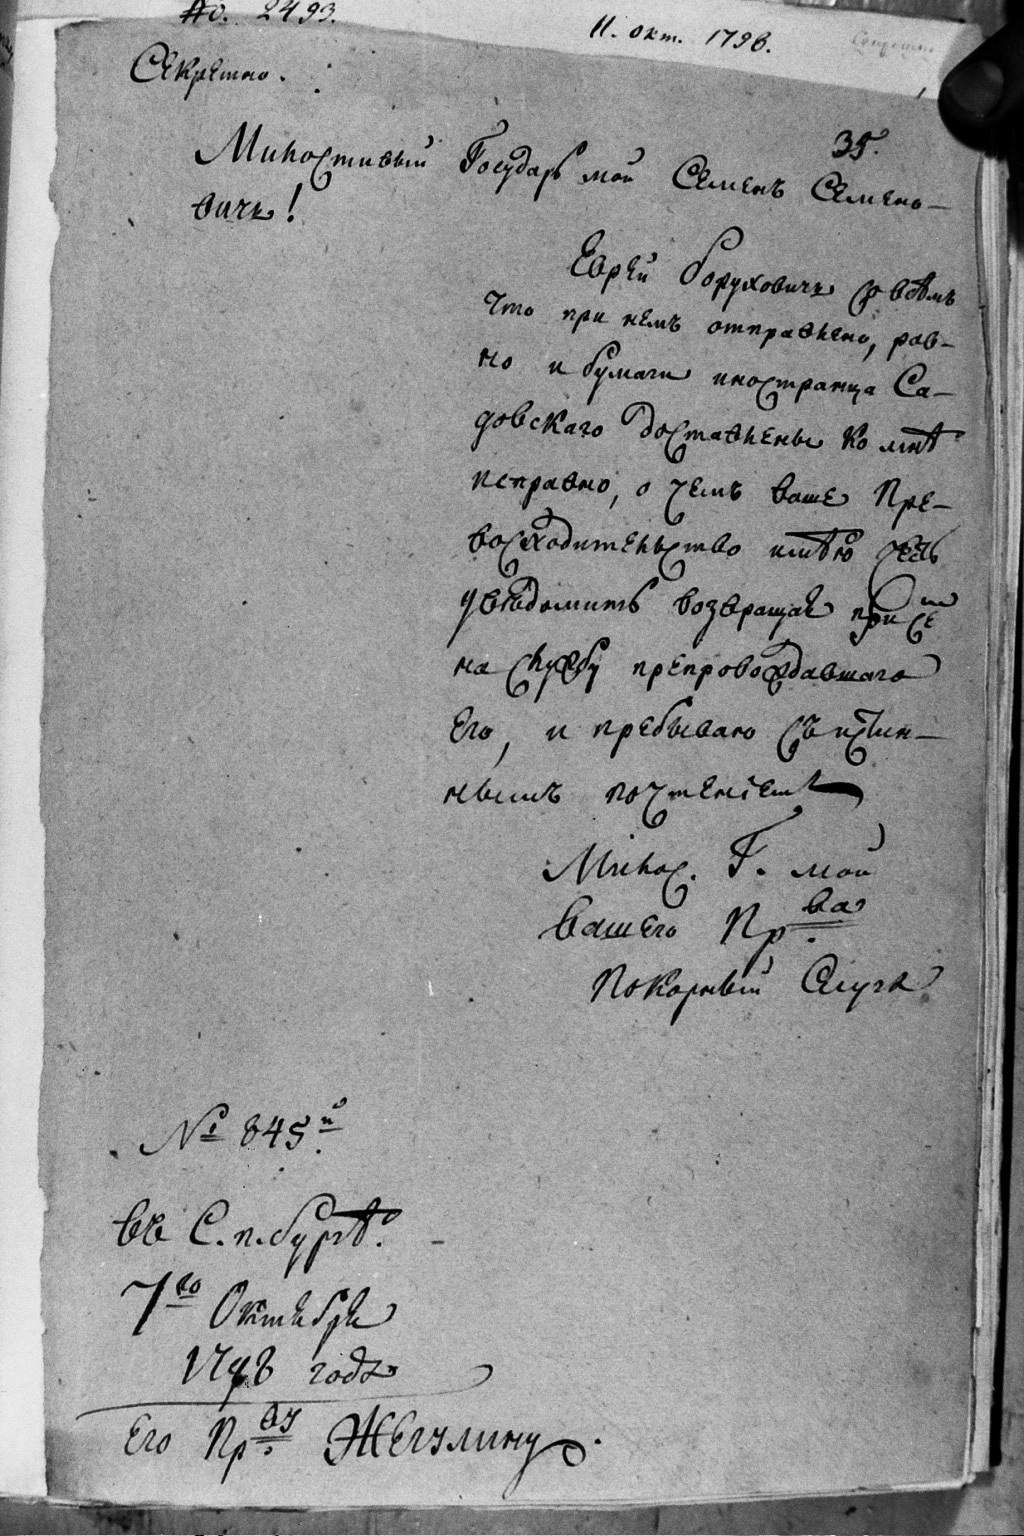 No. 2493.
11. окт. 1798.
Секретно.
35.
Милостивый Государь мой Семенъ Семено-
вичь!
Еврей Боруховичь со всѣмъ
что при немъ отправлено, рав-
но и бумаги иностранца Са-
довскаго доставлены ко мнѣ
исправно, о чемъ ваше Пре-
восходительство имѣю честь
увѣдомить возвращая при семъ
на службу препровождавшаго
его, и пребываю съ истин-
нымъ почтеніемъ
Милос. Г. мой
вашего Пр.ва
покорный Слуга
№ 845й
въ С.п.бургѣ.
7го Октября
1798 года
Его Пр.ву Жегулину.